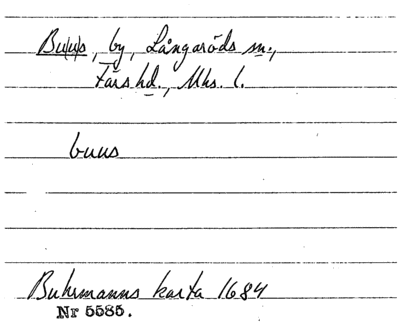 Bu(u)s, by, Långaröds sn.,
Färs hd., Mhs. l.
buus
Buhrmanns karta 1684
Nr 5585.